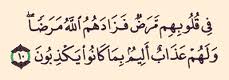 فِي قُلُوبِهِم مَّرَضٌ فَزَادَهُمُ اللَّهُ مَرَضًا ۖ
وَلَهُمْ عَذَابٌ أَلِيمٌ بِمَا كَانُوا يَكْذِبُونَ ١٠